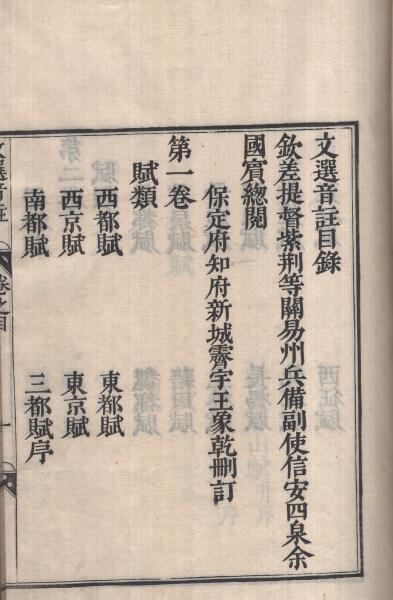 文選音註目錄
欽差提督紫荆等關易州兵備副使信安四泉余
國賓緫閱
保定府知府新城霽宇王象乾刪訂
第一卷
賦類
西都賦 東都賦
西京賦 東京賦
南都賦 三都賦序
文選音註 卷之目 一